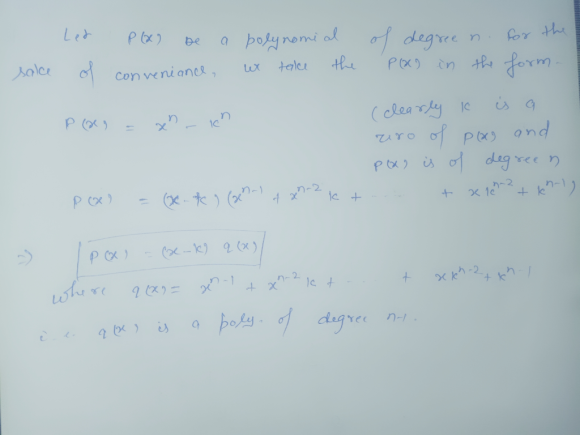 Let P(x) be a polynomial of degree n. For the
sake of conveniance, we take the P(x) in the form.
P(x) = xⁿ - kⁿ
(clearly k is a
zero of P(x) and
P(x) is of degree n
P(x) = (x-k) (xⁿ⁻¹ + xⁿ⁻² k + ..... + x kⁿ⁻² + kⁿ⁻¹)
⇒ P(x) = (x-k) q(x)
where q(x) = xⁿ⁻¹ + xⁿ⁻² k + .. + x kⁿ⁻² + kⁿ⁻¹
i.e. q(x) is a poly. of degree n-1.